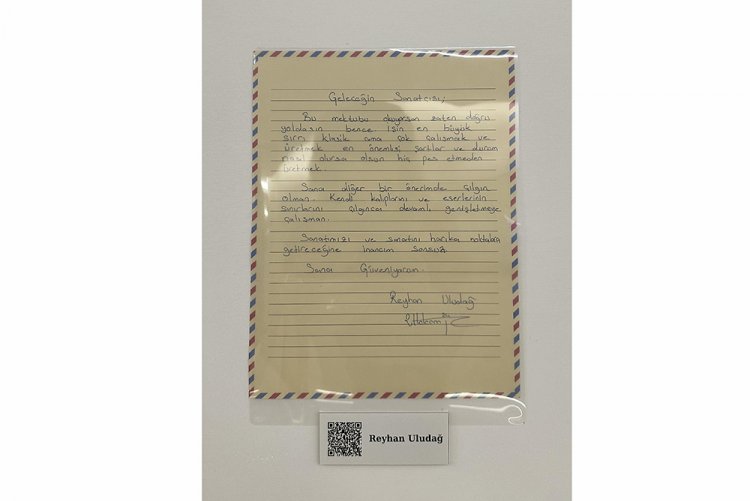 Geleceğin Sanatcısı;
Bu mektubu okuyorsan zaten doğru
yoldasın bence işin en büyük
sırrı klasik ama çok çalışmak ve
üretmek en önemlisi şartlar ve durum
nasıl olursa olsun hiç pes etmeden
üretmek.
Sana diğer bir önerimde çılgın
olman. Kendi kalıplarını ve eserlerinin
sınırlarını çılgınca devamlı genişletmeye
çalışman.
Sanatımızı ve sanatını harika noktalara
getireceğine inancım sonsuz
Sana Güveniyorum.
Reyhan Uludağ
Reyhan Uludağ